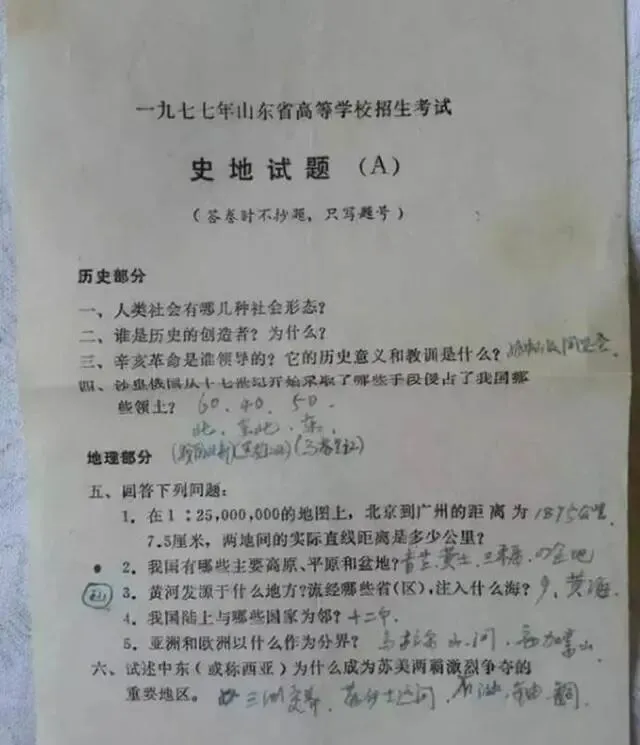 一九七七年山东省高等学校招生考试
史地试题（A）
（答卷时不抄题，只写题号）
历史部分
一、人类社会有哪几种社会形态？
二、谁是历史的创造者？为什么？
三、辛亥革命是谁领导的？它的历史意义和教训是什么？
四、沙皇俄国从十七世纪开始采取了哪些手段侵占了我国哪
些领土？ 60. 40. 50.
北. 东北. 东.
地理部分
五、回答下列问题：
1．在1：25,000,000的地图上，北京到广州的距离为 1875公里
7.5厘米，两地间的实际直线距离是多少公里？
2．我国有哪些主要高原、平原和盆地？
3．黄河发源于什么地方？流经哪些省(区)，注入什么海？ 9、黄海.
4．我国陆上与哪些国家为邻？ 十二个
5．亚洲和欧洲以什么作为分界？
六、试述中东（或称西亚）为什么成为苏美两霸激烈争夺的
重要地区。 三洲交界